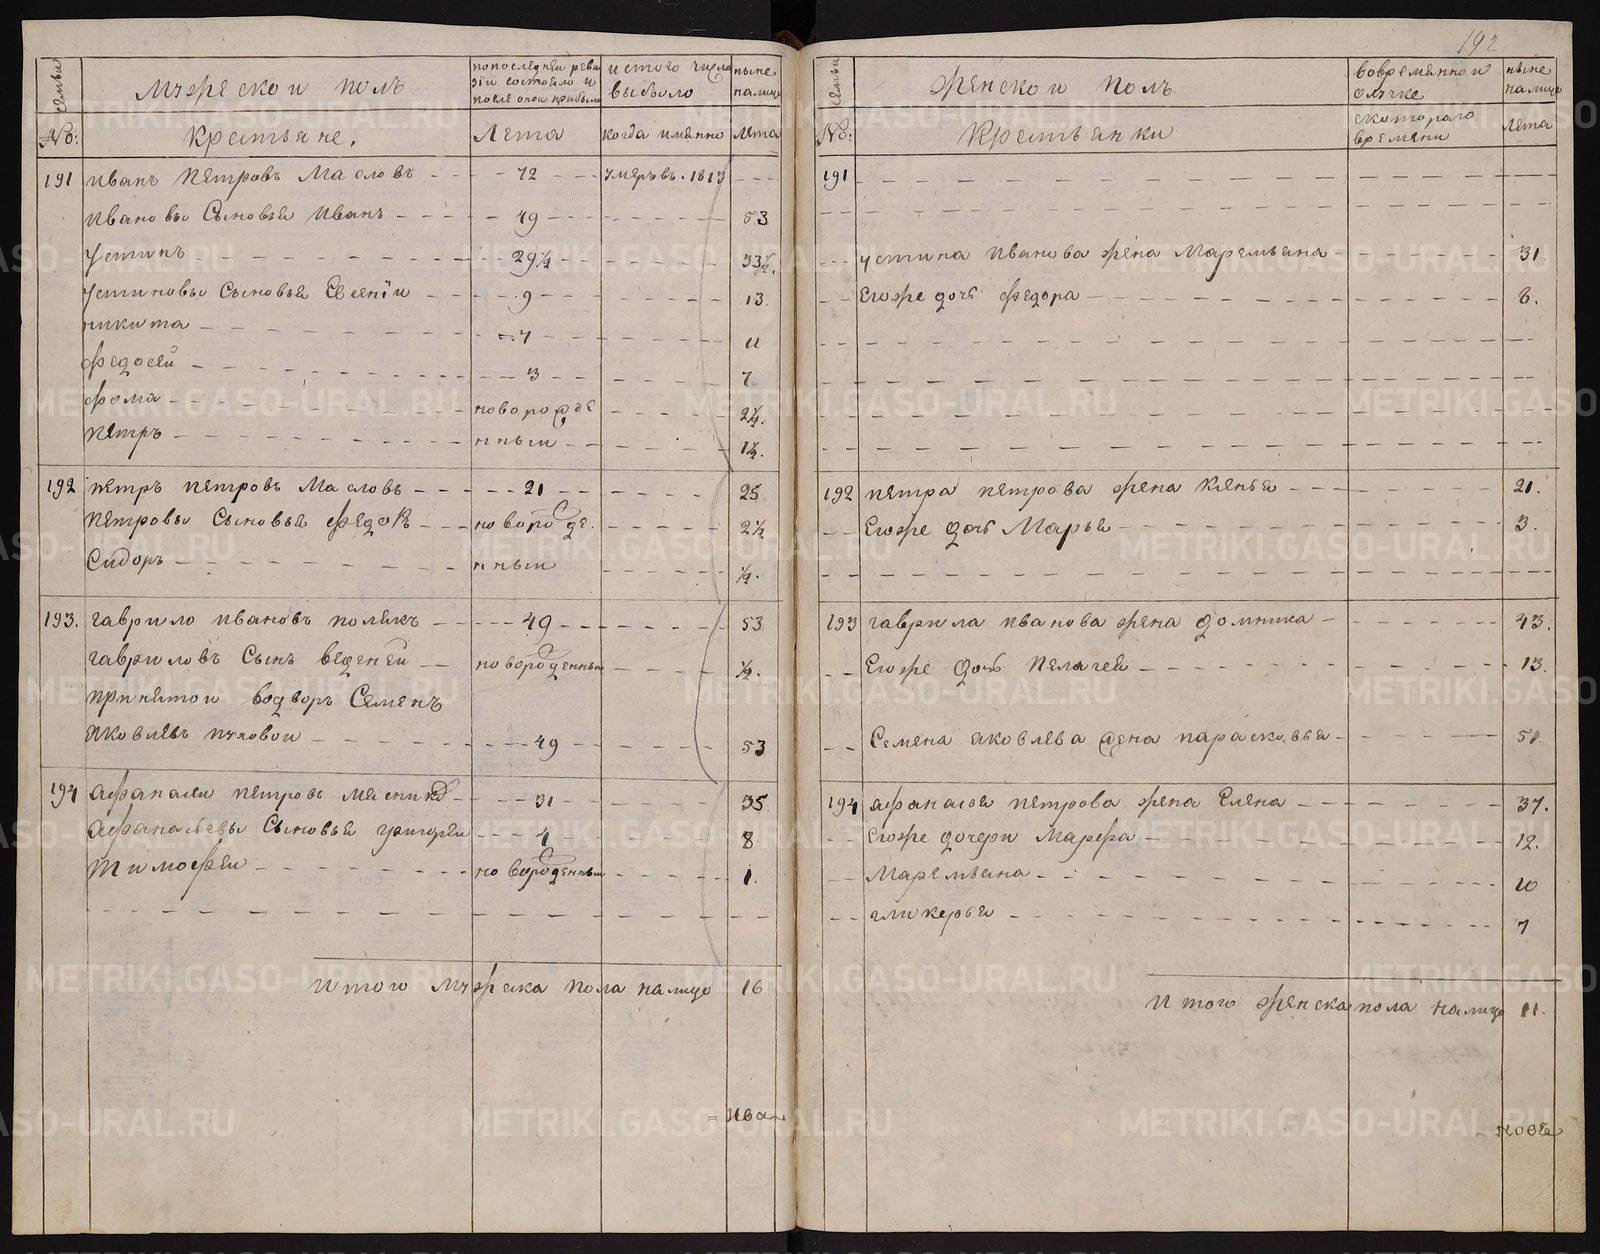 192
семьи
мужескои полъ
попоследнеи реви
зiи состояло и
после онои прибыло
истого числа
выбыло
ныне
налицо
№:
крестьяне.
Лета
когда имянно
лета
191 иванъ петровъ Масловъ 72 умеръ въ 1813
ивановы Сыновья иванъ 49 53
устинъ 29½ 33½.
устиновы Сыновья Евсенiи 9 13.
никита 7 11
федосеи 3 7
фома новорожде 2½.
петръ нныи 1½.
192 петръ петровъ Масловъ 21 25
петровы Сыновья федоръ новорожде. 2½
Сидоръ нныи ½.
193. гаврило ивановъ полякъ 49 53
гавриловъ Сынъ веденеи новорожденныи ½.
принятои водворъ Семенъ
яковлевъ пуповои 49 53
194 афанасеи петровъ мясниковъ 31 35
афанасьевы Сыновья григореи 4 8
тимофеи новорожденныи 1.
итого мужеска пола налицо 16
= ива
семьи
женскои полъ
вовременнои
олучке
ныне
налицо
№:
крестьянки
скотораго
времени
лета
191
устина иванова жена Маремьяна 31
Егоже дочь федора 6.
192 петра петрова жена ксенья 21.
Егоже дочь Марья 3.
193 гаврила иванова жена домника 43.
Егоже дочь пелагея 13.
Семена яковлева жена парасковья 51
194 афанасья петрова жена Елена 37.
Егоже дочери марфа 12.
маремьяна 10
гликерья 7
итого женска пола налицо 11.
METRIKI.GASO-URAL.RU